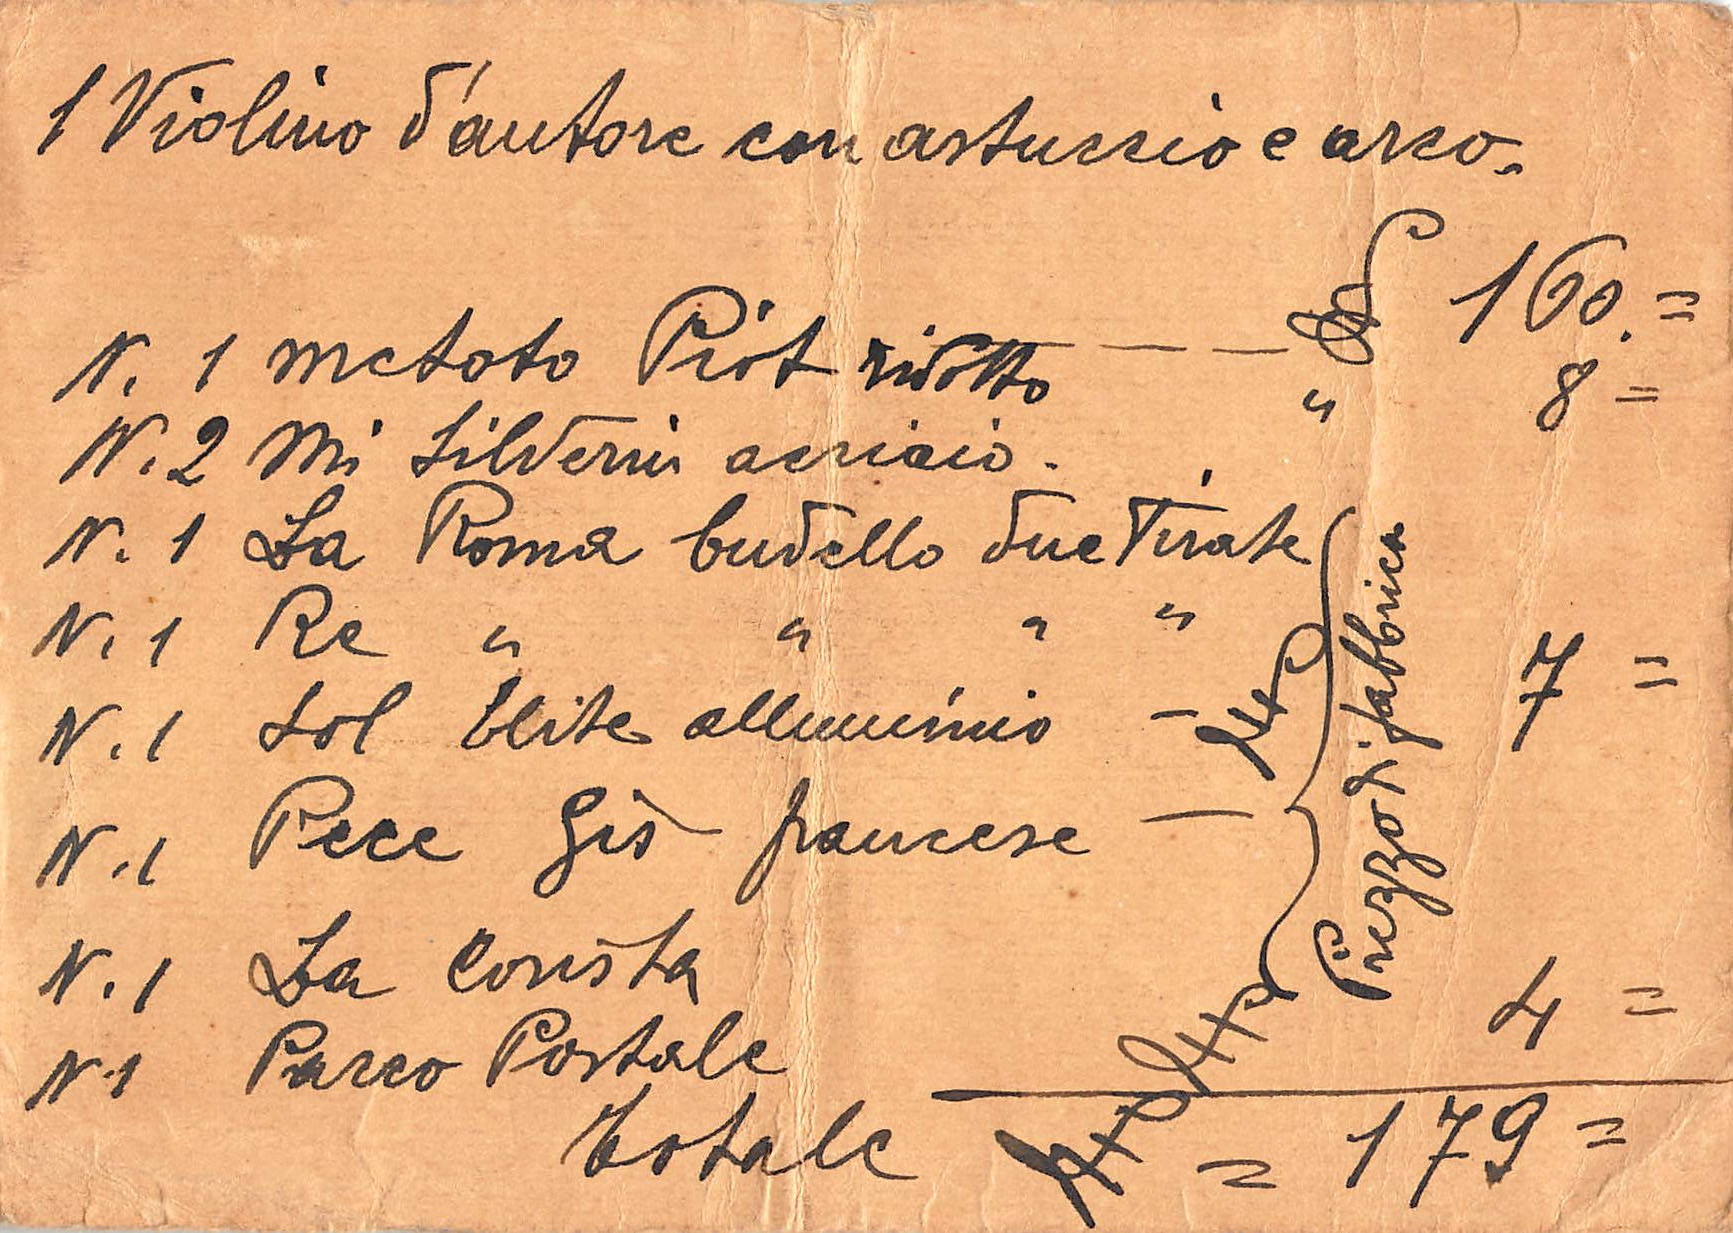 1 Violino d'autore con astuccio e arco.
£ 160.=
N. 1 metodo Piot ridotto — — — " 8 =
N. 2 Mi Silverin acciaio.
N. 1 La Roma budello due Tirate
N. 1 Re " " " "
N. 1 Sol Elite alluminio — £ 7 =
N. 1 Pece Gis francese —
Prezzo di fabbrica
N. 1 La
N. 1 Pacco Postale £ 4 =
Totale £ = 179 =